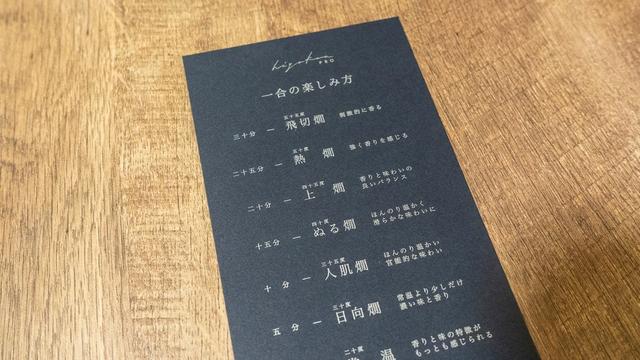 PRO
一合の楽しみ方
五十五度
三十分 — 飛切燗 刺激的に香る
五十度
二十五分 — 熱 燗 強く香りを感じる
四十五度
二十分 — 上 燗 香りと味わいの
良いバランス
四十度
十五分 — ぬる燗 ほんのり温かく
滑らかな味わいに
三十五度
十 分 — 人肌燗 ほんのり温かい
官能的な味わい
三十度
五 分 — 日向燗 常温より少しだけ
濃い味と香り
二十度
常 温 香りと味の特徴が
もっとも感じられる